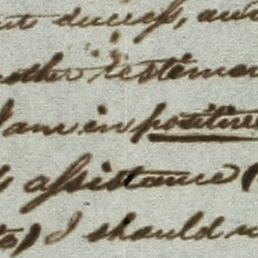 out success, and
other testimon
I am in positive
assistance (
to) I should n